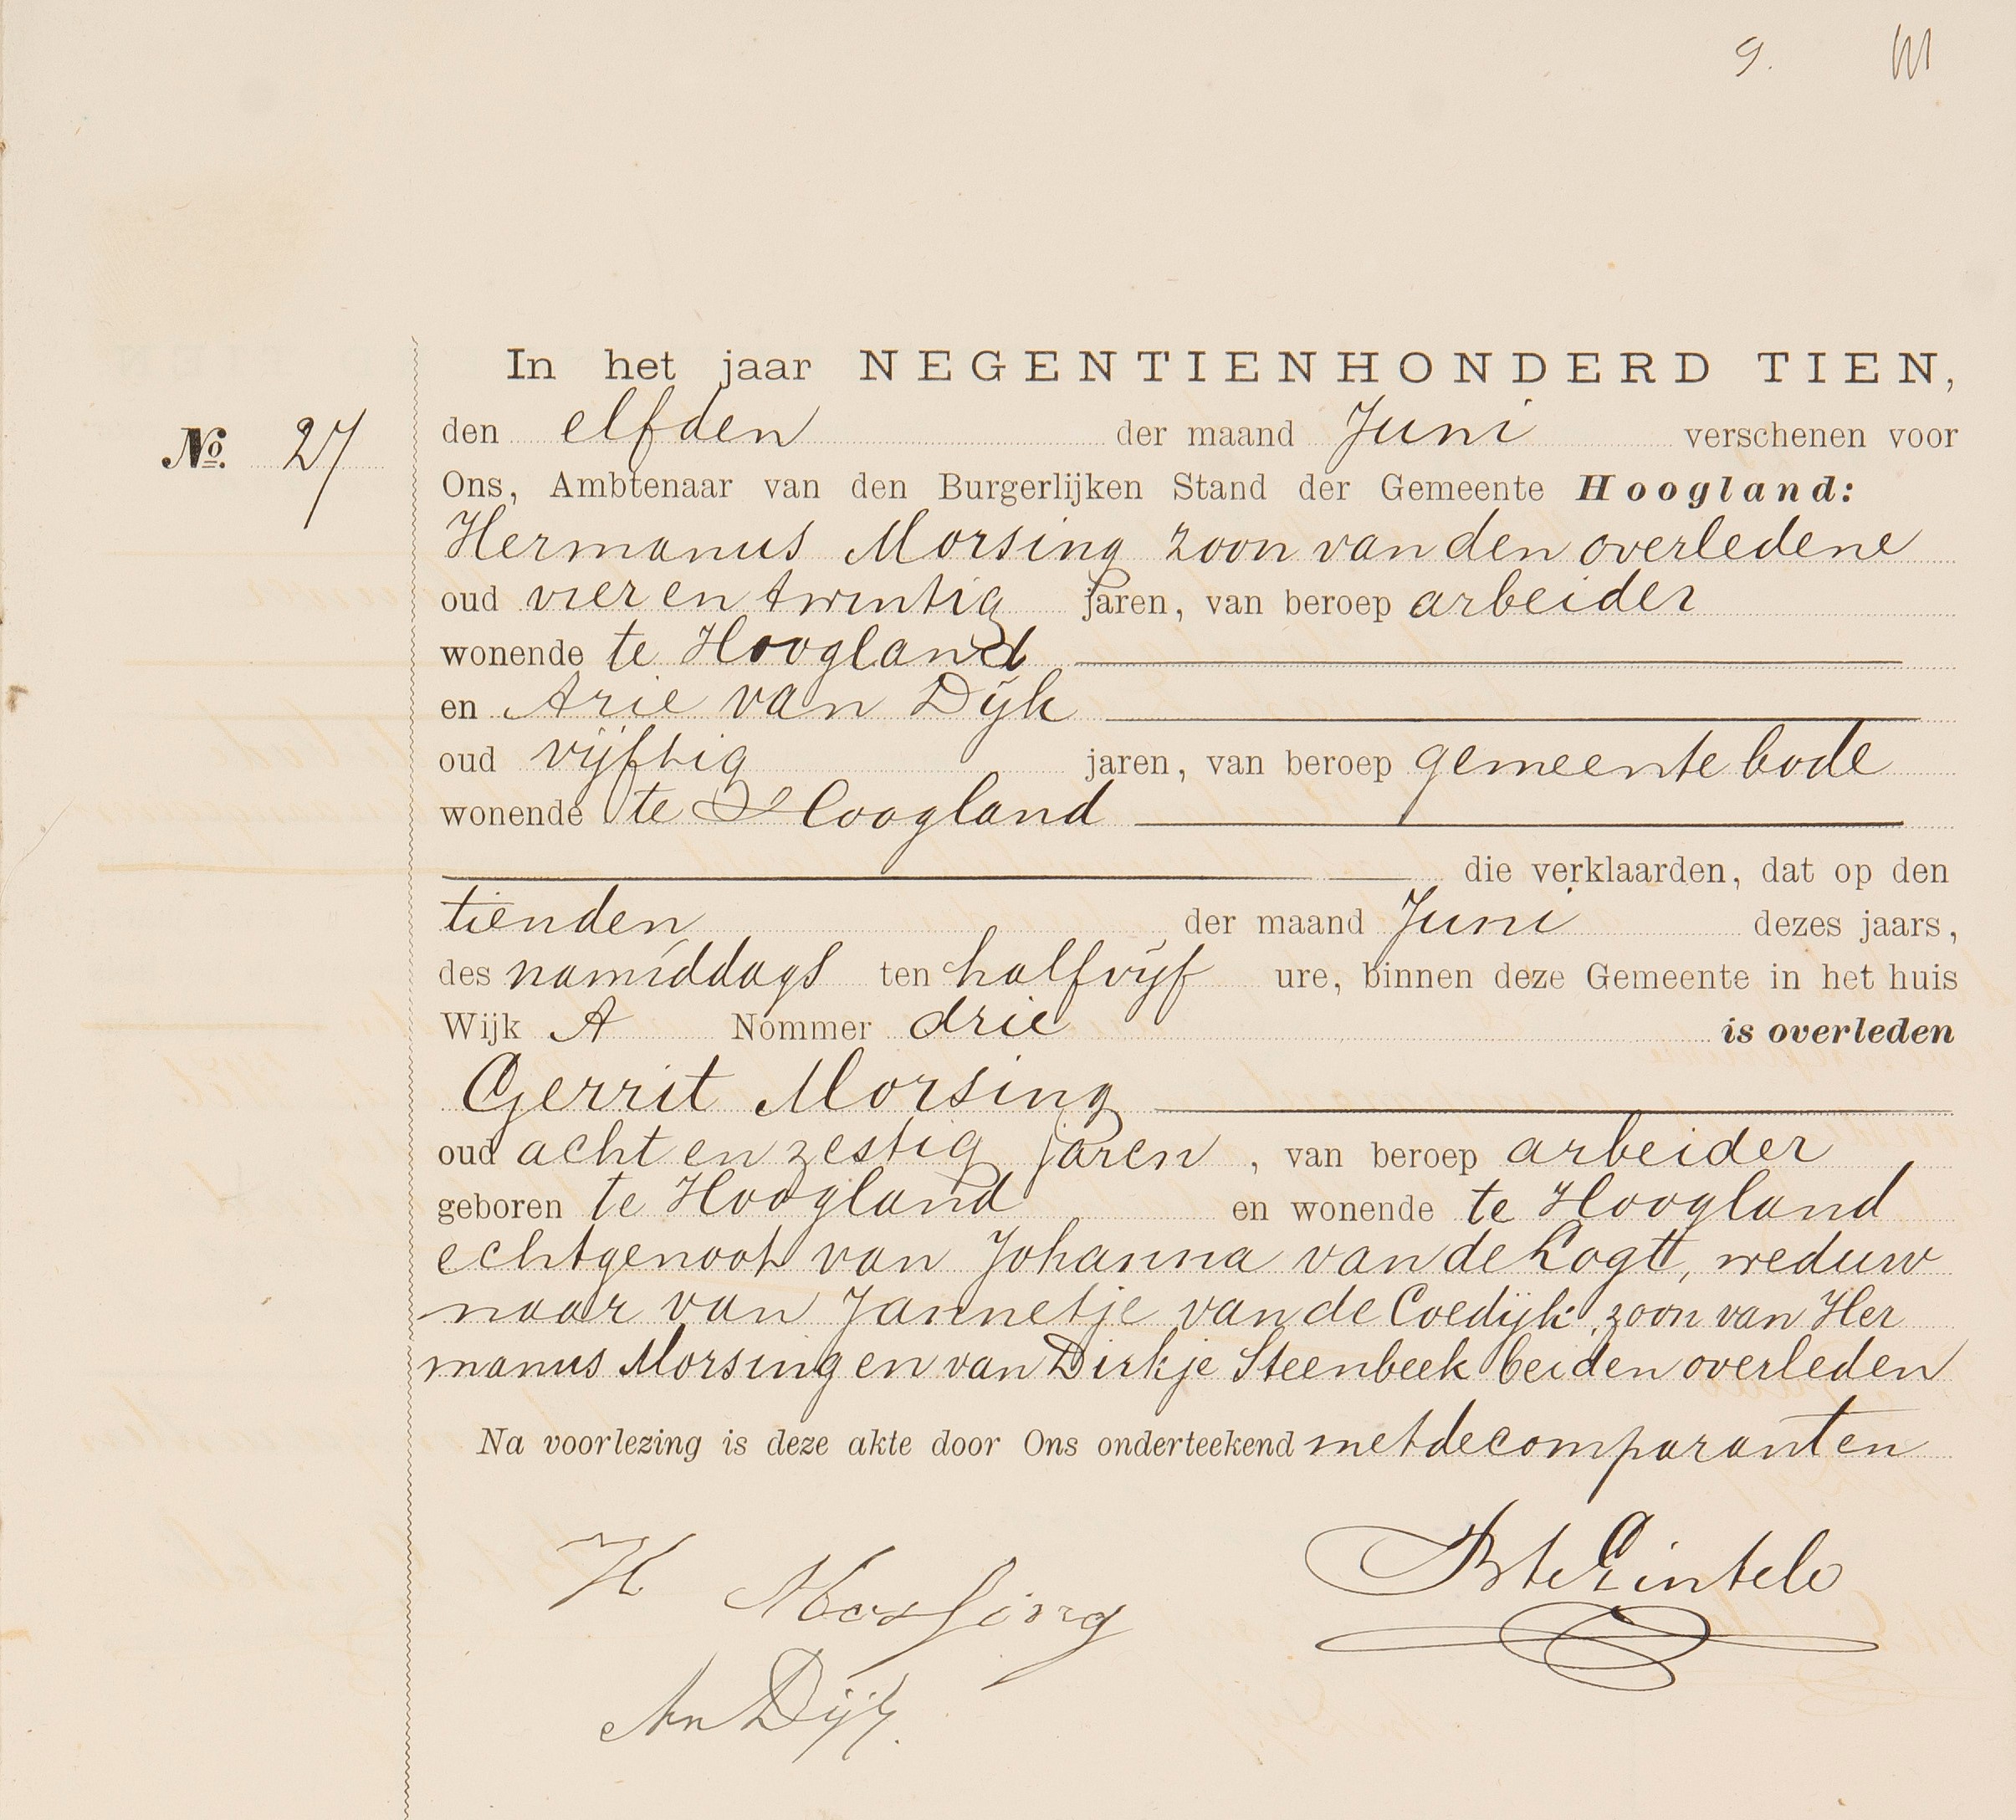 9.
No. 27
In het jaar NEGENTIENHONDERD TIEN,
den elfden der maand Juni verschenen voor
Ons, Ambtenaar van den Burgerlijken Stand der Gemeente Hoogland:
Hermanus Morsing zoon van den overledene
oud vier en twintig jaren, van beroep arbeider
wonende te Hoogland
en Arie van Dijk
oud vijftig jaren, van beroep gemeente bode
wonende te Hoogland
die verklaarden, dat op den
tienden der maand Juni dezes jaars,
des namiddags ten half vijf ure, binnen deze Gemeente in het huis
Wijk A Nommer drie is overleden
Gerrit Morsing
oud acht en zestig jaren, van beroep arbeider
geboren te Hoogland en wonende te Hoogland
echtgenoot van Johanna van de Logtt, weduw
naar van Jannetje van de Coedijk, zoon van Her
manus Morsing en van Dirkje Steenbeek beiden overleden
Na voorlezing is deze akte door Ons onderteekend met de comparanten
H Morsing
AvDijk.